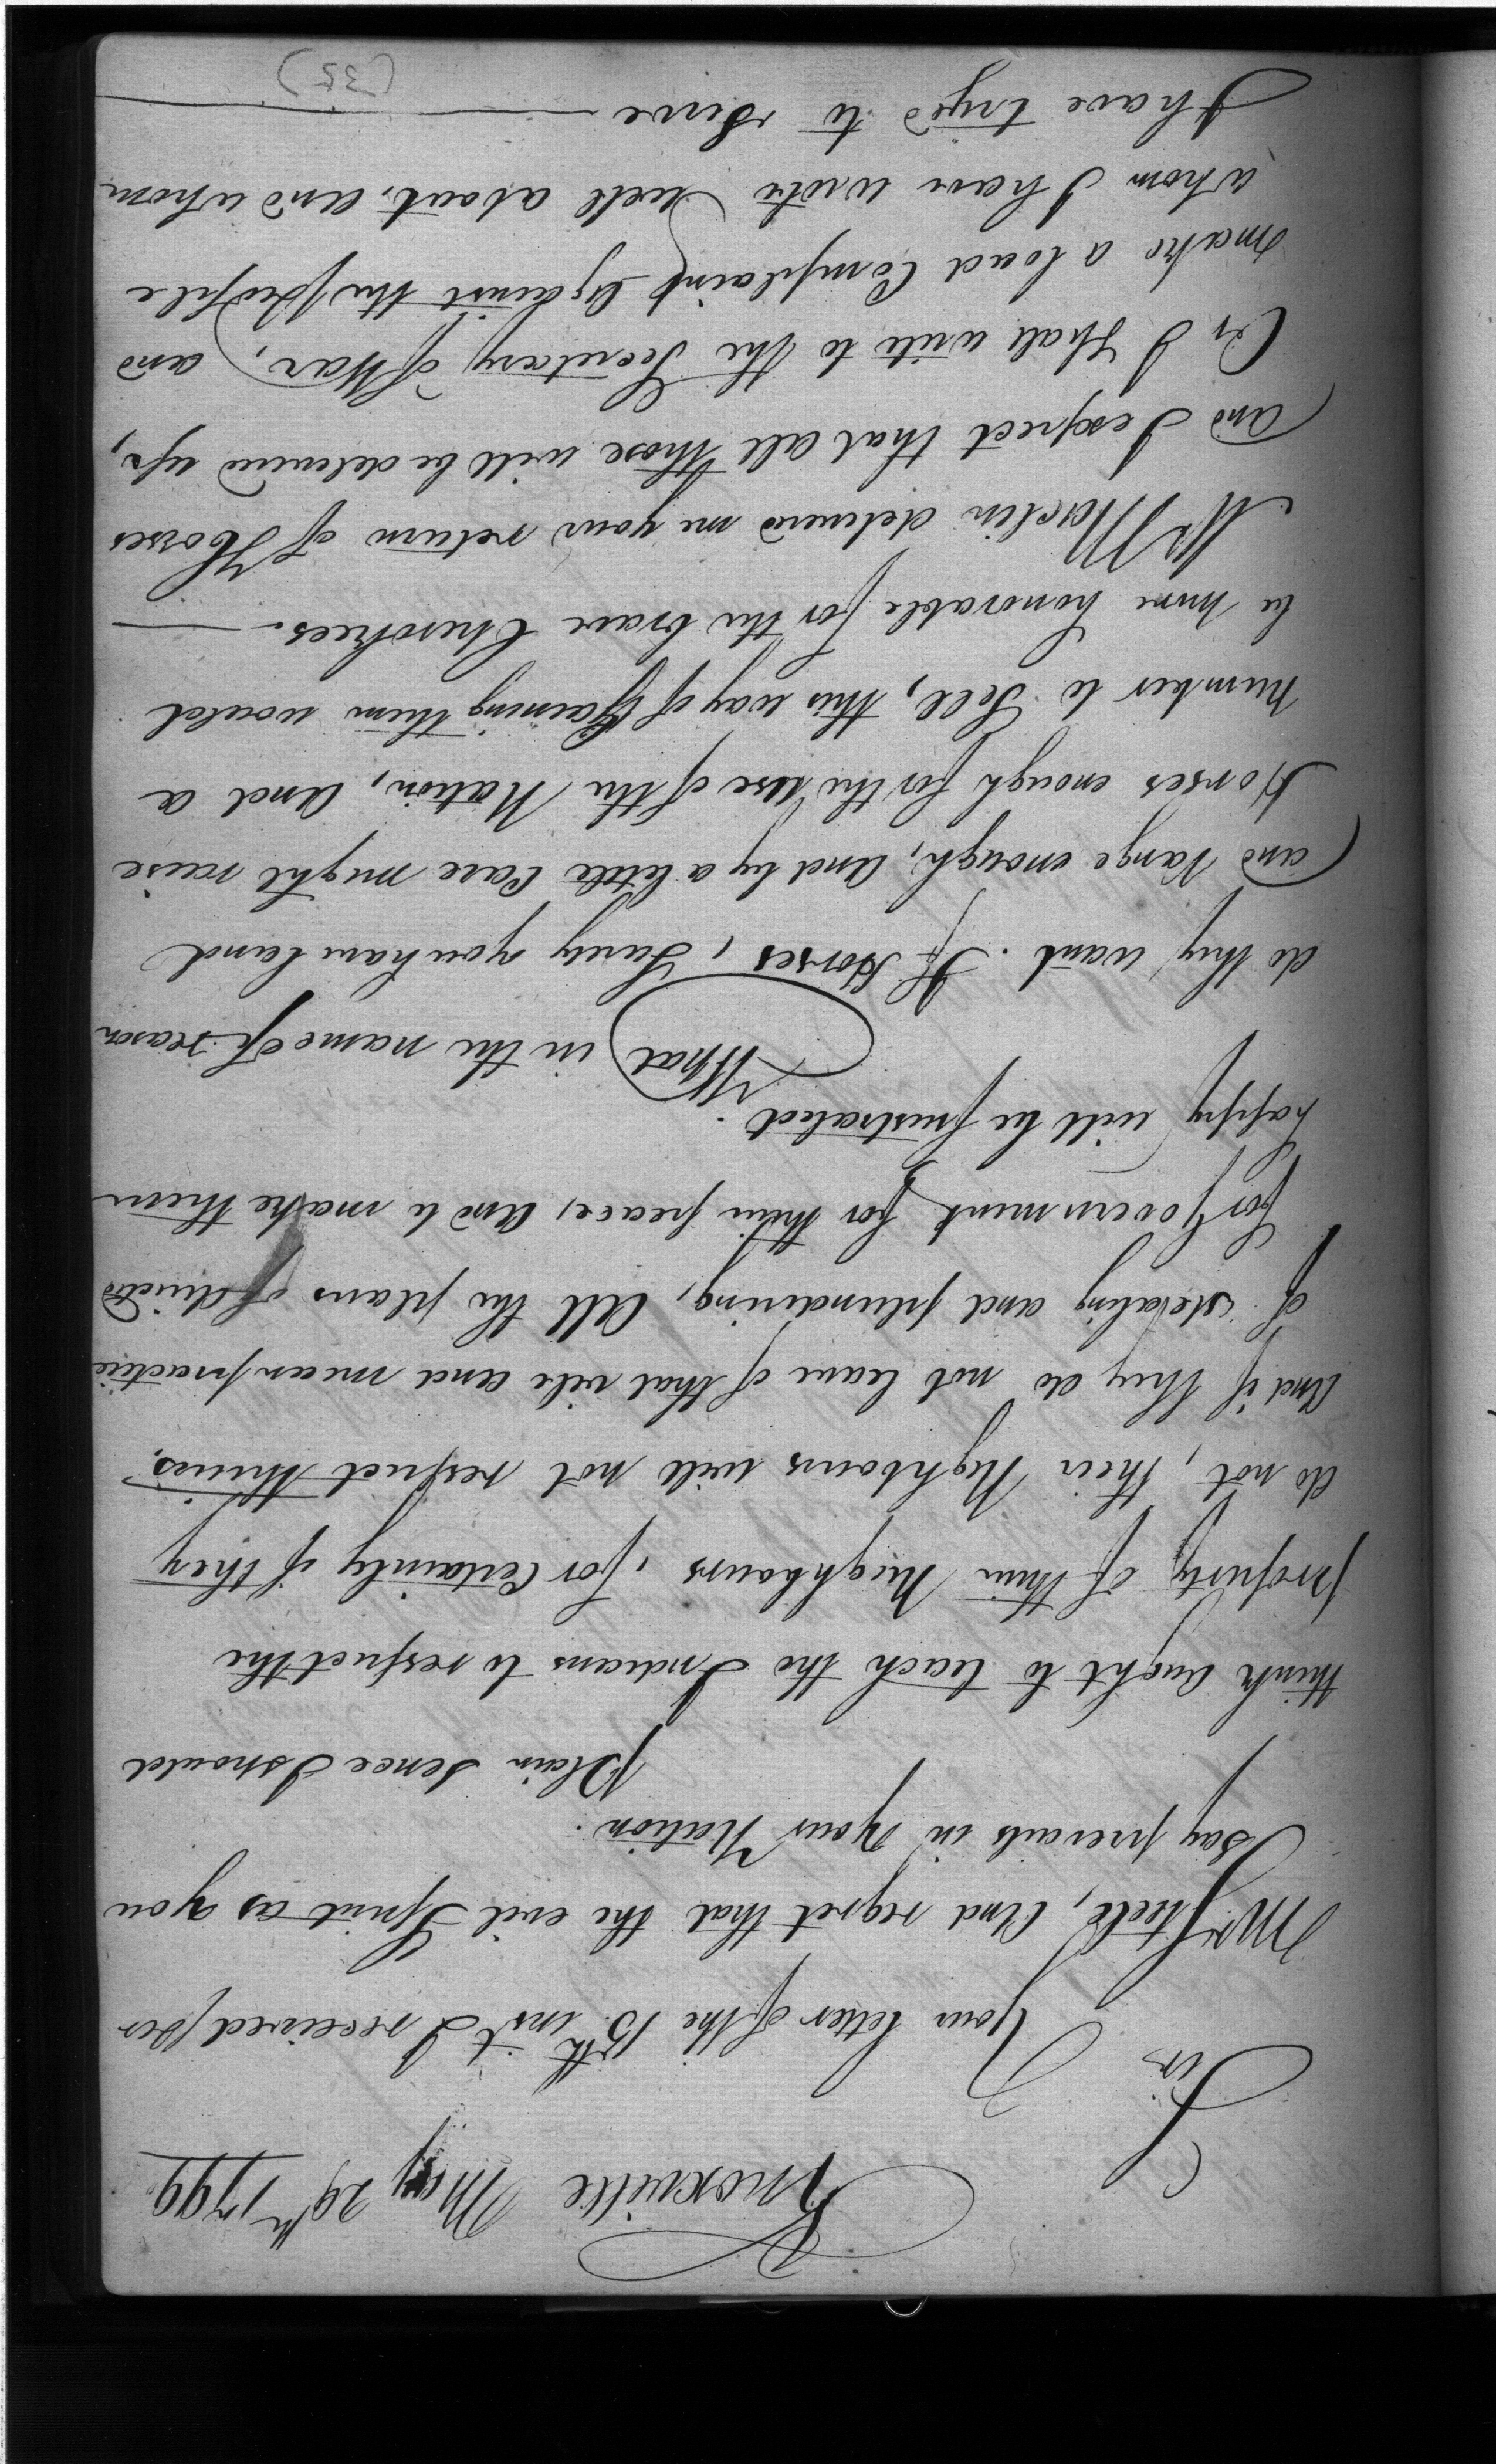 Knoxville May 29th 1799
Sir
Your letter of the 15th inst I received per
Mr Steele, And regret that the evil Spirit as you
say prevails in your Nation.
Plain sence I should
think aught to teach the Indians to respect the
property of their Neighbours, for Certainly if they
do not, their Nighbours will not respect theirs.
And if they do not leave of that vile and mean practice
of stealing and plundering, All the plans of
for Government for their peace, And to make them
happy will be frustrated.
What in the name of reason
do they want. If Horses, Surely you have land
and range enough, And by a little Care might raise
Horses enough for the use of the Nation, And a
number to Sell, this way of Gaining them would
be more honorable for the brave Cherokees.
Mr Martin deliverd me your return of Horses
and I expect that all those will be deliverd up,
Or I Shall write to the Secretary of War, and
make a load Complaint Against the people
whom I have wrote well about, And whom
I have tryed to Serve
(35)